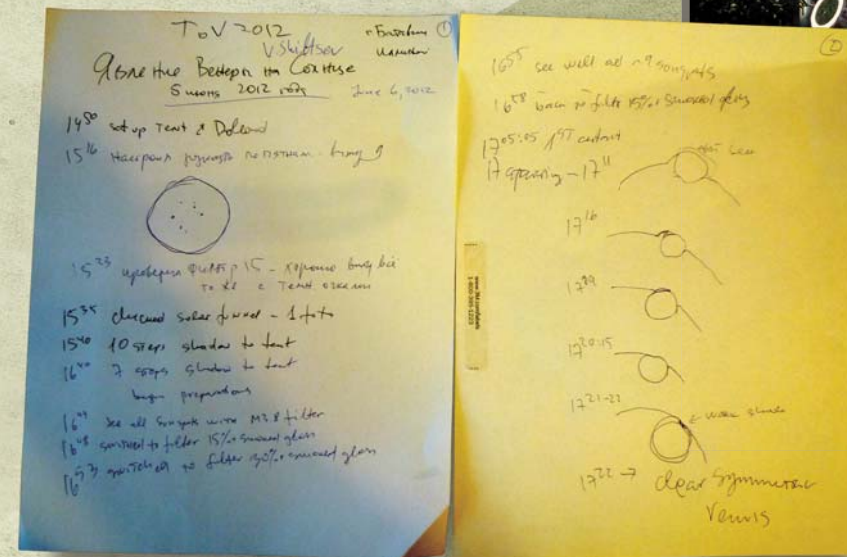 ToV 2012
V Shiltsev
①
Явление Венеры на Солнце
5 июня 2012 года
June 6, 2012
14⁵⁰ set up tent & Dollond
15¹⁶ Настроил по пятнам - вижу 9
15²³ проверил фильтр 15 - хорошо вижу всё
то же с очками
15³⁵ checked solar funnel - 1 foto
15⁴⁰ 10 steps shadow to tent
16⁴⁰ 7 steps shadow to tent
begin preparations
16⁴⁴ see all sunspots with filter
16⁴⁸ switched to filter 15% + smoked glass
16⁵³ switched to filter 30% + smoked glass
②
16⁵⁵ see well all ~9 sunspots
16⁵⁸ back to filter 15% + smoked glass
17⁰⁵:⁰⁵ 1ST contact
17 - 17¹¹
not seen
17¹⁶
17¹⁹
17²⁰:¹⁵
17²¹⁻²²
17²² → clear symmetric
Venus